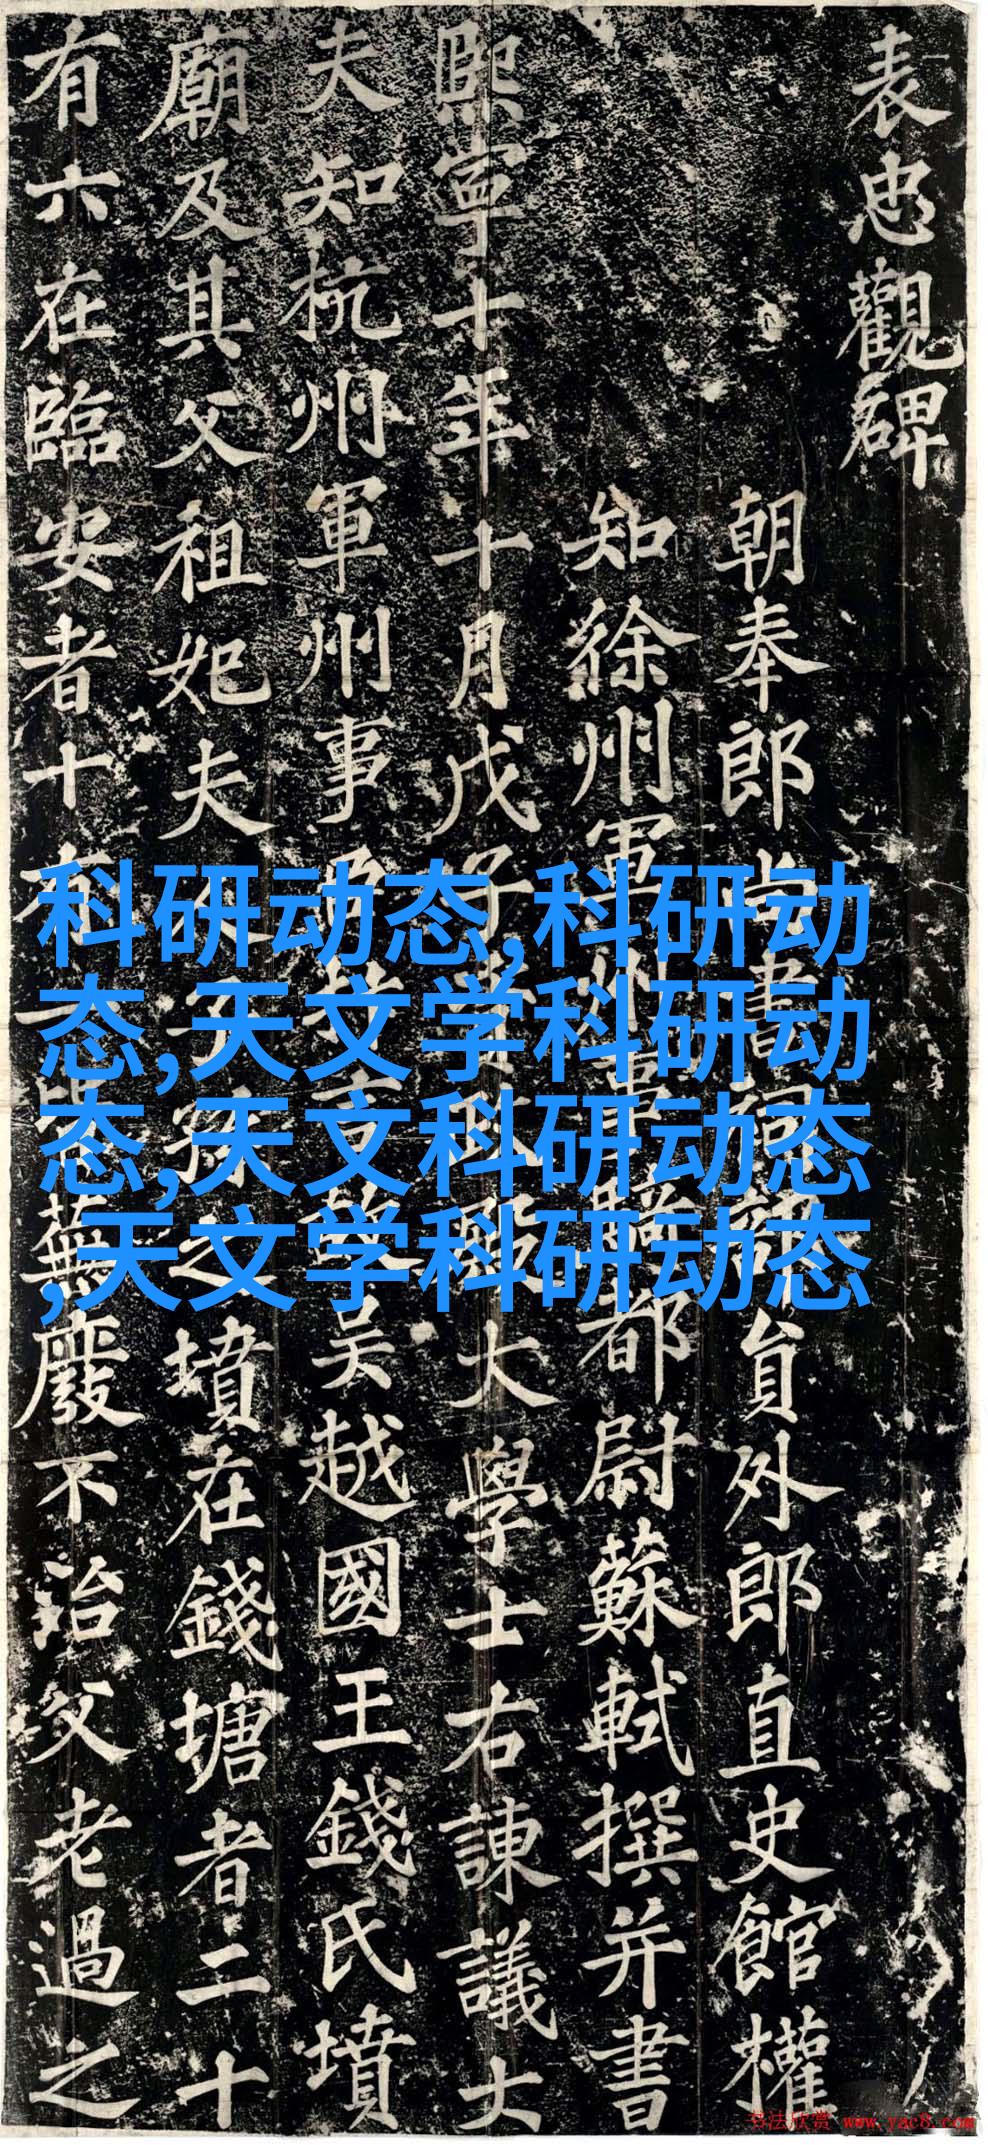 表忠觀碑
朝奉郎尚書祠部員外郎直史館權
知徐州軍州事騎都尉蘇軾撰并書
熙寧十年十月戊子資政殿大學士右諫議大
夫知杭州軍州事臣抃言故吳越國王錢氏墳
廟及其父祖妃夫人子孫之墳在錢塘者二十
有六在臨安者十有一皆蕪廢不治父老過之
科研动态,科研动
态,天文学科研动
态,天文科研动态
,天文学科研动态
书法欣赏 www.yac8.com